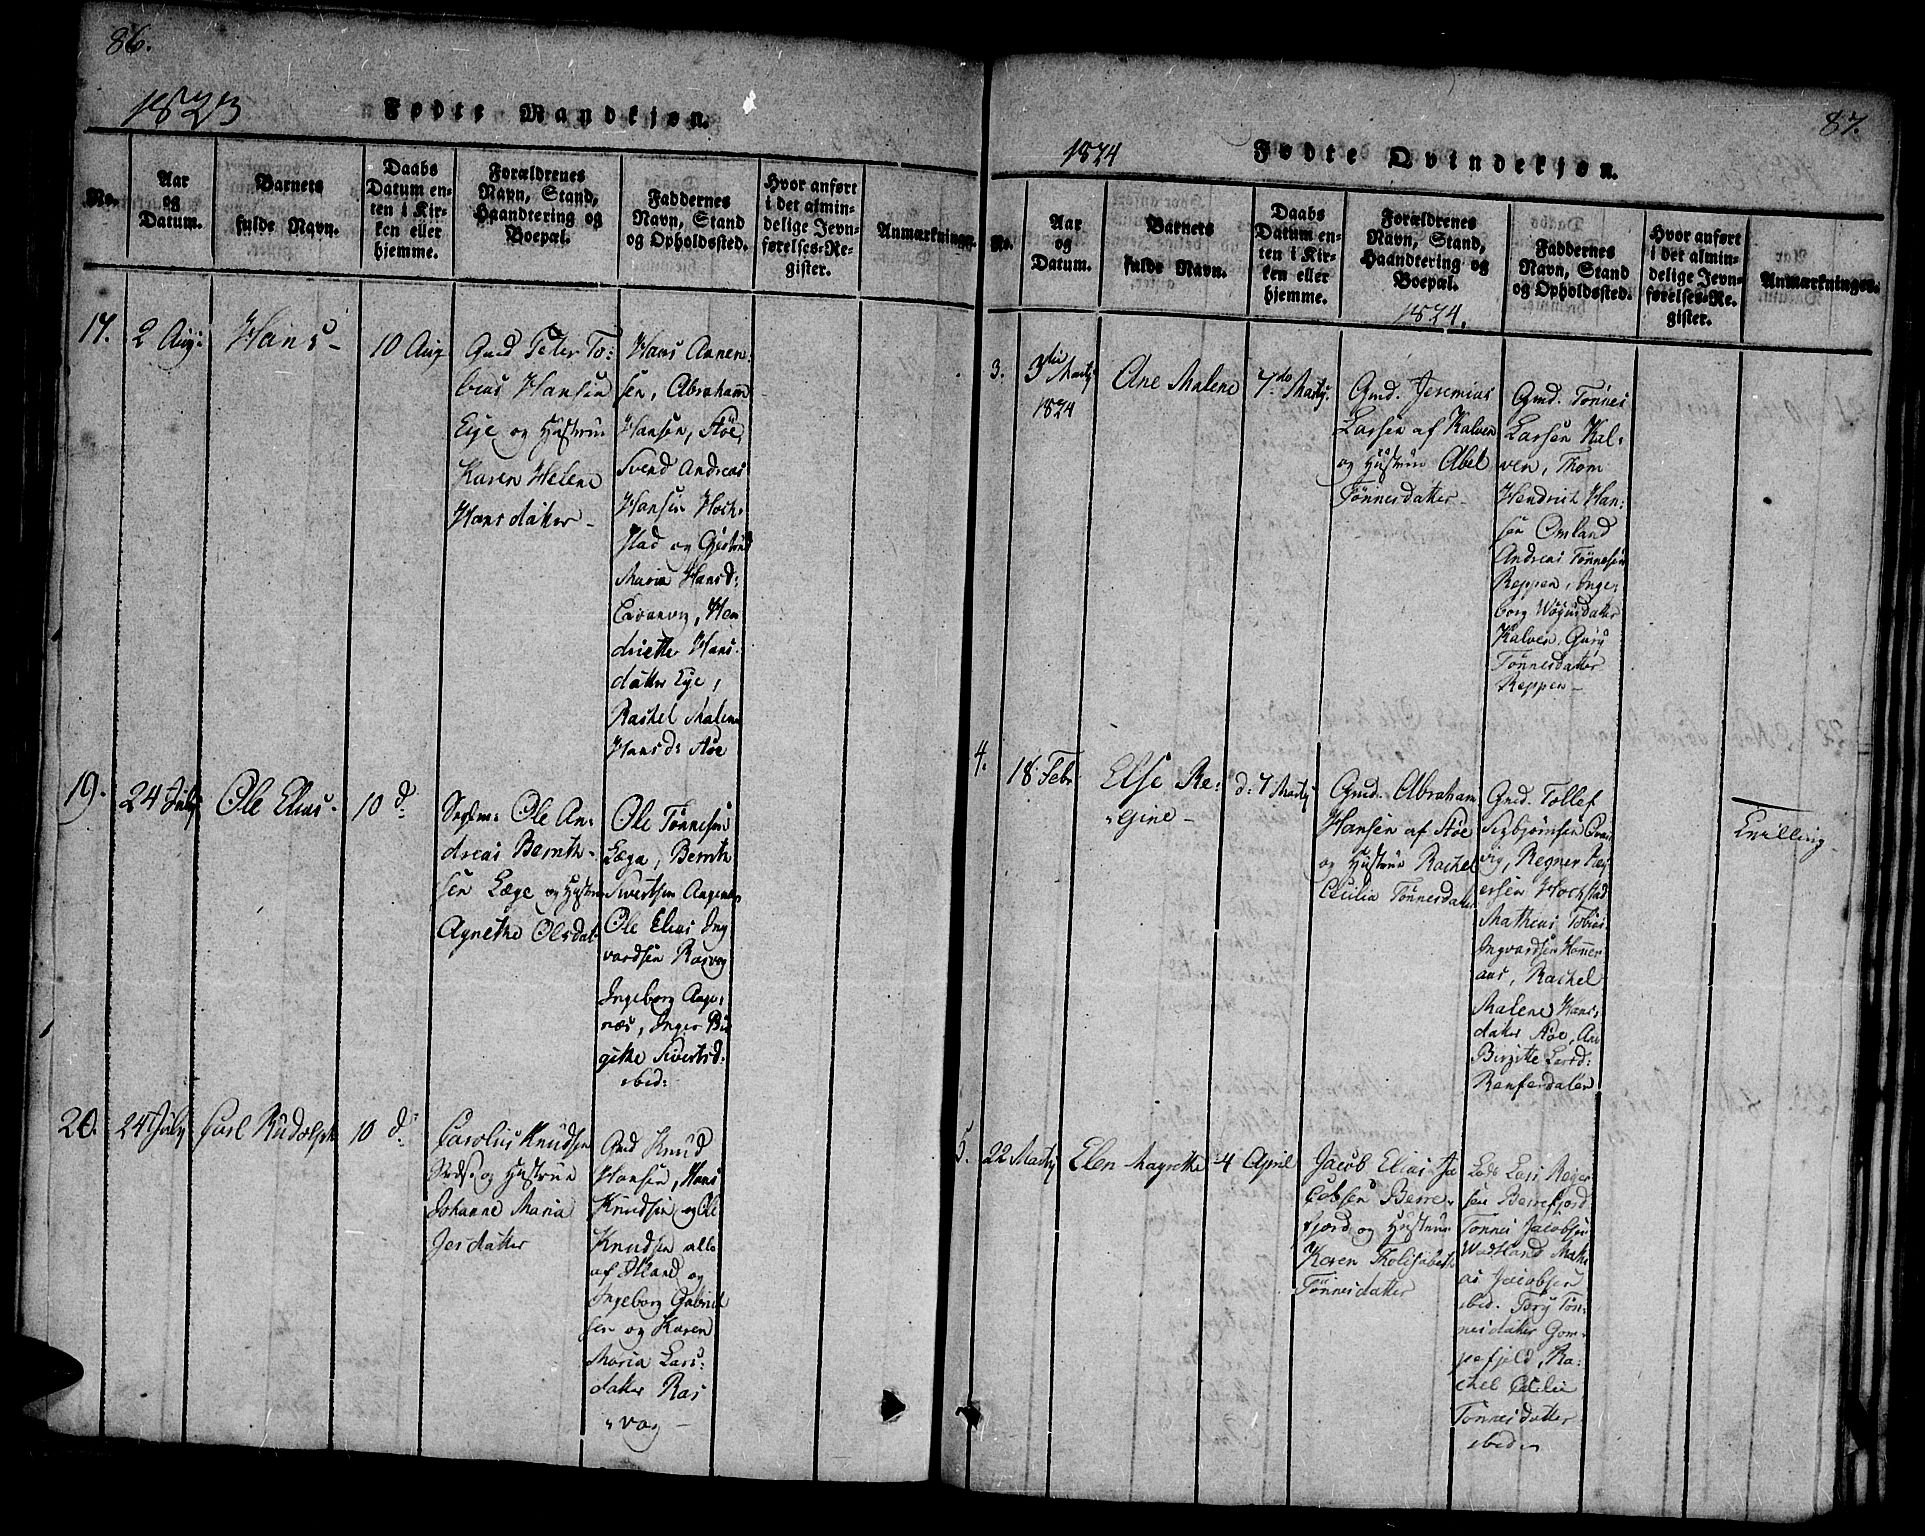 86.
1823
Fødte Mandkjøn.
No.
Aar
og
Datum.
Barnets
fulde Navn.
Daabs
Datum en-
ten i Kir-
ken eller
hjemme.
Forældrenes
Navn, Stand,
Haandtering og
Boepæl.
Faddernes
Navn, Stand
og Opholdssted.
Hvor anført
i det almin-
delige Jevn-
førelses-Re-
gister.
Anmærkninger.
2 Aug:
Hans
10 Aug
Gmd Peter To:
bias Hansen
Eye og Hustrue
Karen Helene
Hansdatter
Hans Aanen
sen, Abraham
Hansen, Støe
Svend Andreas
Hansen Hoch:
stad og
Maria Hansd:
Hen
driette Hans
datter Eye,
Rachel Malene
Hansd: Støe
19.
24 July
Ole Elias.
10 d:
Ole An:
dreas Bernth
sen Lege og Hustrue
Agnethe Olsdat
Ole Tønnesen
Bernth
Sivertsen
Ole Elias Ing
vardsen Rasvog
Ingeborg Ange:
næs, Inger Bir
githe Sivertsd.
ibid:
20.
24 July
Carl Rudolph
10 d:
Carolus Knudsen
og Hustrue
Johanne Maria
Jesdatter
Gmd Knud
Hansen, Hans
Knudsen og Ole
Knudsen alle
af
og
Ingeborg Gabriel
sen og Karen
Maria Lars:
datter Ras
vog
87.
1824
Fødte Qvindekjøn.
No.
Aar
og
Datum.
Barnets
fulde Navn.
Daabs
Datum en-
ten i Kir-
ken eller
hjemme.
Forældrenes
Navn, Stand,
Haandtering og
Boepæl.
Faddernes
Navn, Stand
og Opholdssted.
Hvor anført
i det almin-
delige Jevn-
førelses-Re-
gister.
Anmærkninger.
1824.
3.
3die Martz
1824
Ane Malene
7de Martz.
Gmd. Jeremias
Larsen af Kalven
og Hustrue Abel
Tønnesdatter
Gmd. Tønnes
Larsen Kal:
ven, Thom
Hendrich Han:
sen Omland
Andreas Tønnesen
Reppen, Inge:
borg
Kalven, Gury
Tønnesdatter
Reppen
4.
18 Febr
Else Re:
gine
d: 7 Martz
Gmd. Abraham
Hansen af Støe
og Hustrue Rachel
Cecilia Tønnesdatter
Gmd. Tollef
Sigbjørnsen
Regner
Hochstad
Mathias Tobias
Ingvardsen
Rachel
Malene Hans:
datter Støe, Ane
Birgitte Larsd:
Tvilling
5.
22 Martz
Elen Magrethe
4 April
Jacob Elias Ja
cobsen Berre
fjord og Hustrue
Karen
Tønnesdatter
Lars Reiers
sen Berrefjord
Tønnes Jacobsen
Mathi
as Jacobsen
ibid. Tory Tøn
nesdatter Gom
pefjeld, Ra:
chel Cecilie
Tønnesdatter
ibiden